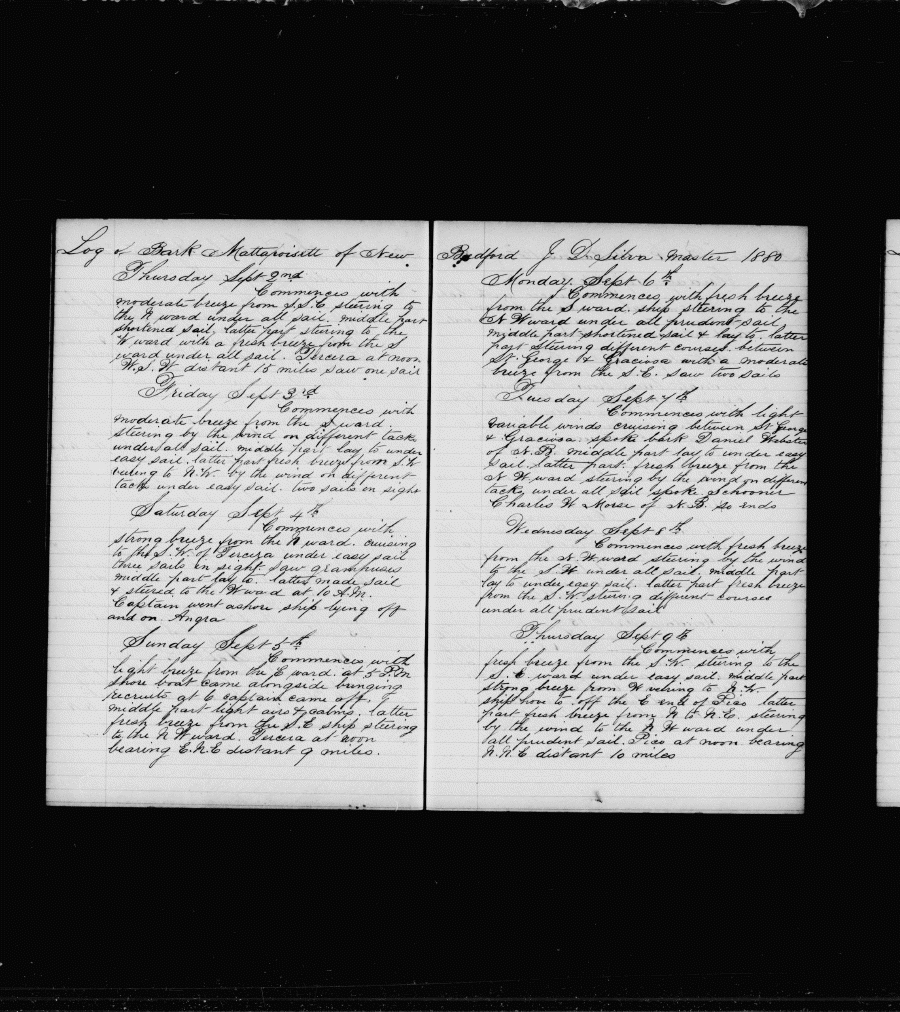 Log of Bark Mattaroisett of New
Thursday Sept 2nd
Commences with
moderate breeze from S.S.E steering to
the N ward under all sail. middle part
shortened sail, latter part steering to the
W ward with a fresh breeze from the S
ward under all sail. Tercera at noon
W.S.W distant 15 miles saw one sail
Friday Sept 3rd
Commences with
moderate breeze from the S ward.
steering by the wind on different tacks
under all sail. middle part lay to under
easy sail. latter part fresh breeze from S.W
veering to N.W. by the wind on different
tacks under easy sail. two sails in sight
Saturday Sept 4th
Commences with
strong breeze from the N ward. cruising
to the S.W. of Tercera under easy sail
three sails in sight saw grampuses
middle part lay to. latter made sail
& steered to the W ward at 10 A.M.
Captain went ashore ship lying off
and on Angra
Sunday Sept 5th
Commences with
light breeze from the E ward. at 5 P.M
shore boat came alongside bringing
recruits at 6 captain came off.
middle part light airs & calms. latter
fresh breeze from the S.E ship steering
to the N W ward. Tercera at noon
bearing E.N.E distant 9 miles.
Bedford J D Silva master 1880
Monday Sept 6th
Commences with fresh breeze
from the S ward. ship steering to the
N W ward under all prudent sail
middle part shortened sail & lay to. latter
part steering different courses between
St. George & Graciosa with a moderate
breeze from the S.E. saw two sails
Tuesday Sept 7th
Commences with light
variable winds cruising between St George
& Graciosa. spoke bark Daniel Webster
of N.B. middle part lay to under easy
sail. latter part. fresh breeze from the
N W ward steering by the wind on different
tacks under all sail spoke Schooner
Charles W Morse of N.B. so ends
Wednesday Sept 8th
Commences with fresh breeze
from the N.W. ward steering by the wind
to the S.W under all sail. middle part
lay to under easy sail. latter part fresh breeze
from the S.W. steering different courses
under all prudent sail
Thursday Sept 9th
Commences with
fresh breeze from the S.W. steering to the
S.E ward under easy sail. middle part
strong breeze from W veering to N.W.
ship hove to. off the E end of Pico latter
part fresh breeze from N to N.E. steering
by the wind to the N W ward under
all prudent sail. Pico at noon bearing
N.N.E distant 10 miles